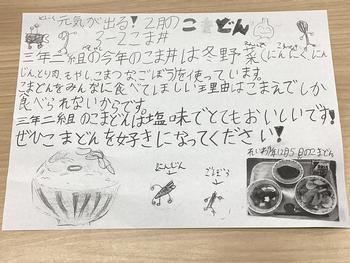 元気が出る!2月のこまどん
3-2こま丼
三年二組の今年のこま丼は冬野菜(にんにく、にん
じん、とり肉、もやし、こまつな、ごぼう)を使っています。
こまどんをみんなに食べてほしい理由はこまえでしか
食べられないからです。
三年二組のこまどんは塩味でとてもおいしいです!
ぜひこまどんを好きになってください!
にんじん
ごぼう
12月5日のこまどん